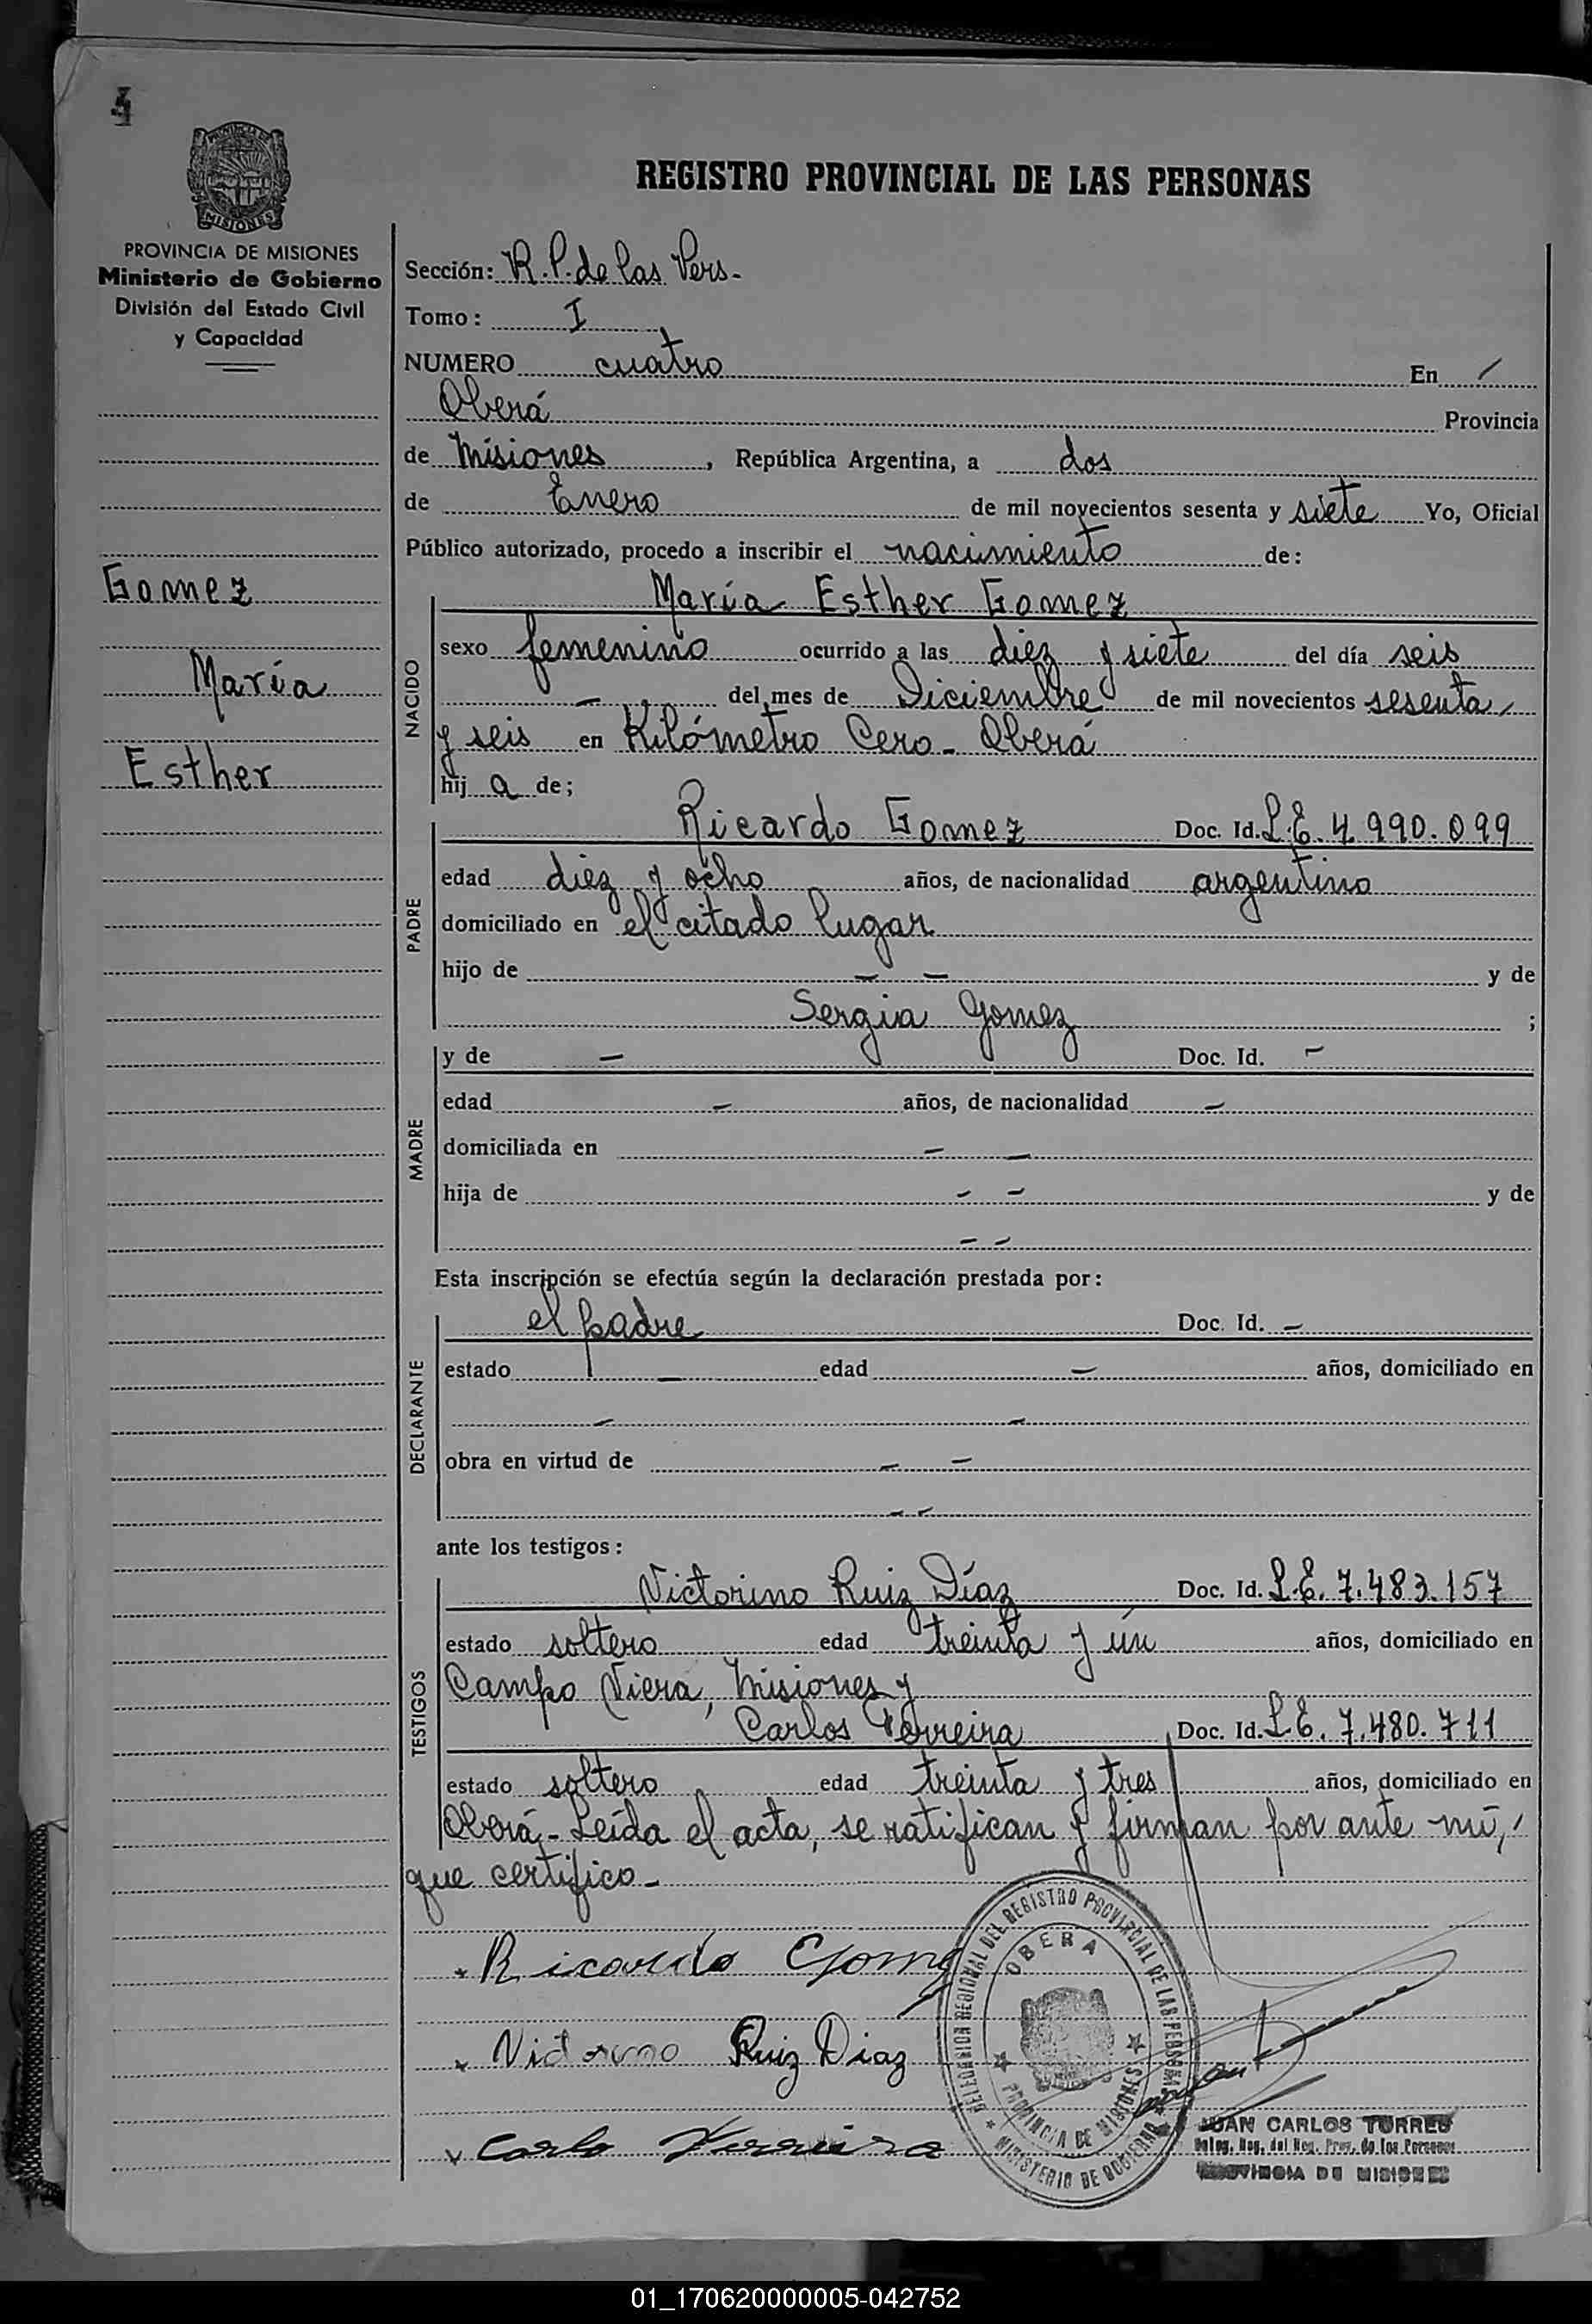 4
PROVINCIA DE MISIONES
Ministerio de Gobierno
División del Estado Civil
y Capacidad
Gomez
María
Esther
REGISTRO PROVINCIAL DE LAS PERSONAS
Sección: R.P. de las Pers-
Tomo: I
NUMERO cuatro En /
Oberá Provincia
de Misiones, República Argentina, a dos
de Enero de mil novecientos sesenta y siete Yo, Oficial
Público autorizado, procedo a inscribir el nacimiento de:
María Esther Gomez
NACIDO
sexo femenino ocurrido a las diez y siete del día seis
— del mes de Diciembre de mil novecientos sesenta /
y seis en Kilómetro Cero - Oberá
hij a de;
PADRE
Ricardo Gomez Doc. Id. L.E. 4.990.099
edad diez y ocho años, de nacionalidad argentino
domiciliado en el citado lugar
hijo de — — y de
Sergia Gomez ;
MADRE
y de — Doc. Id. —
edad — años, de nacionalidad —
domiciliada en — —
hija de — — y de
— —
Esta inscripción se efectúa según la declaración prestada por:
DECLARANTE
el padre Doc. Id. —
estado — edad — años, domiciliado en
— —
obra en virtud de — —
— —
ante los testigos:
TESTIGOS
Victorino Ruiz Díaz Doc. Id. L.E. 7.483.157
estado soltero edad treinta y ún años, domiciliado en
Campo Viera, Misiones y
Carlos Ferreira Doc. Id. L.E. 7.480.711
estado soltero edad treinta y tres años, domiciliado en
Oberá,- Leída el acta, se ratifican y firman por ante mí, /
que certifico -
Ricardo Gomez
Victorino Ruiz Diaz
Carlo Ferreira
DELEGACION REGIONAL DEL REGISTRO PROVINCIAL DE LAS PERSONAS
OBERA
PROVINCIA DE MISIONES
MINISTERIO DE GOBIERNO
JUAN CARLOS TORRES
Deleg. Reg. del Reg. Prov. de las Personas
PROVINCIA DE MISIONES
01_170620000005-042752